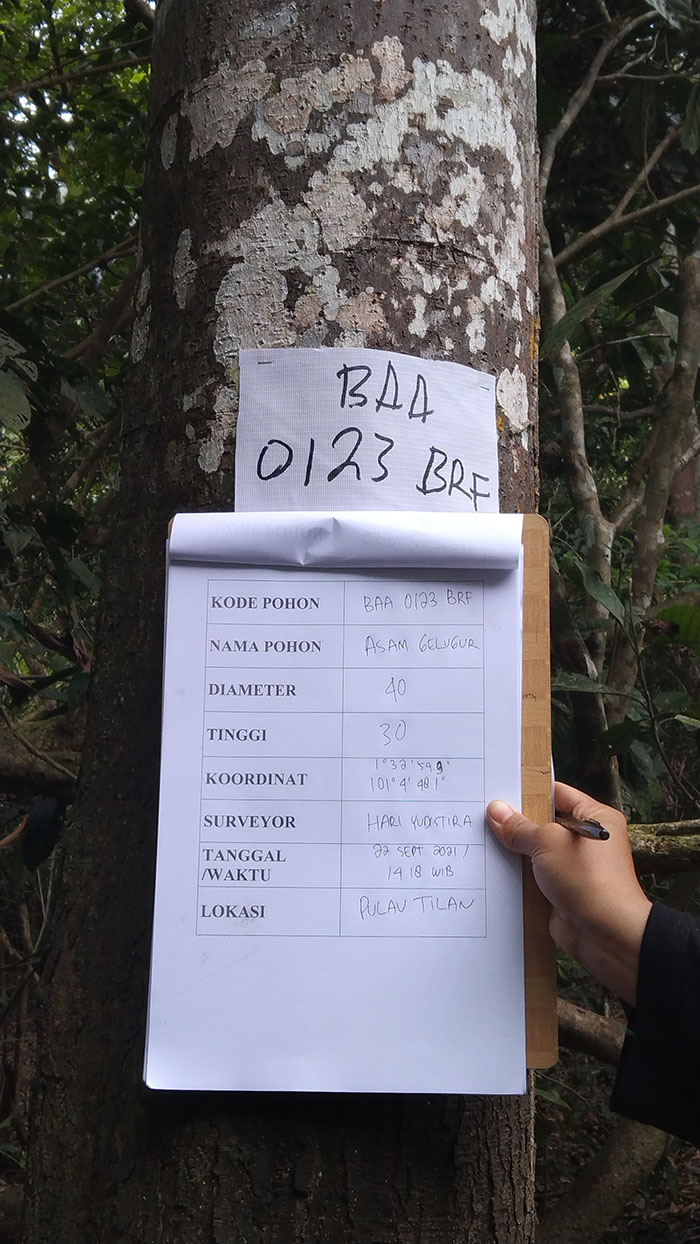 BAA
0123 BRF
KODE POHON BAA 0123 BRF
NAMA POHON ASAM GELUGUR
DIAMETER 40
TINGGI 30
KOORDINAT 1°32'54.9"
101°4'48.1"
SURVEYOR HARI YUDISTIRA
TANGGAL
/WAKTU 22 SEPT 2021/
14 18 WIB
LOKASI PULAU TILAN